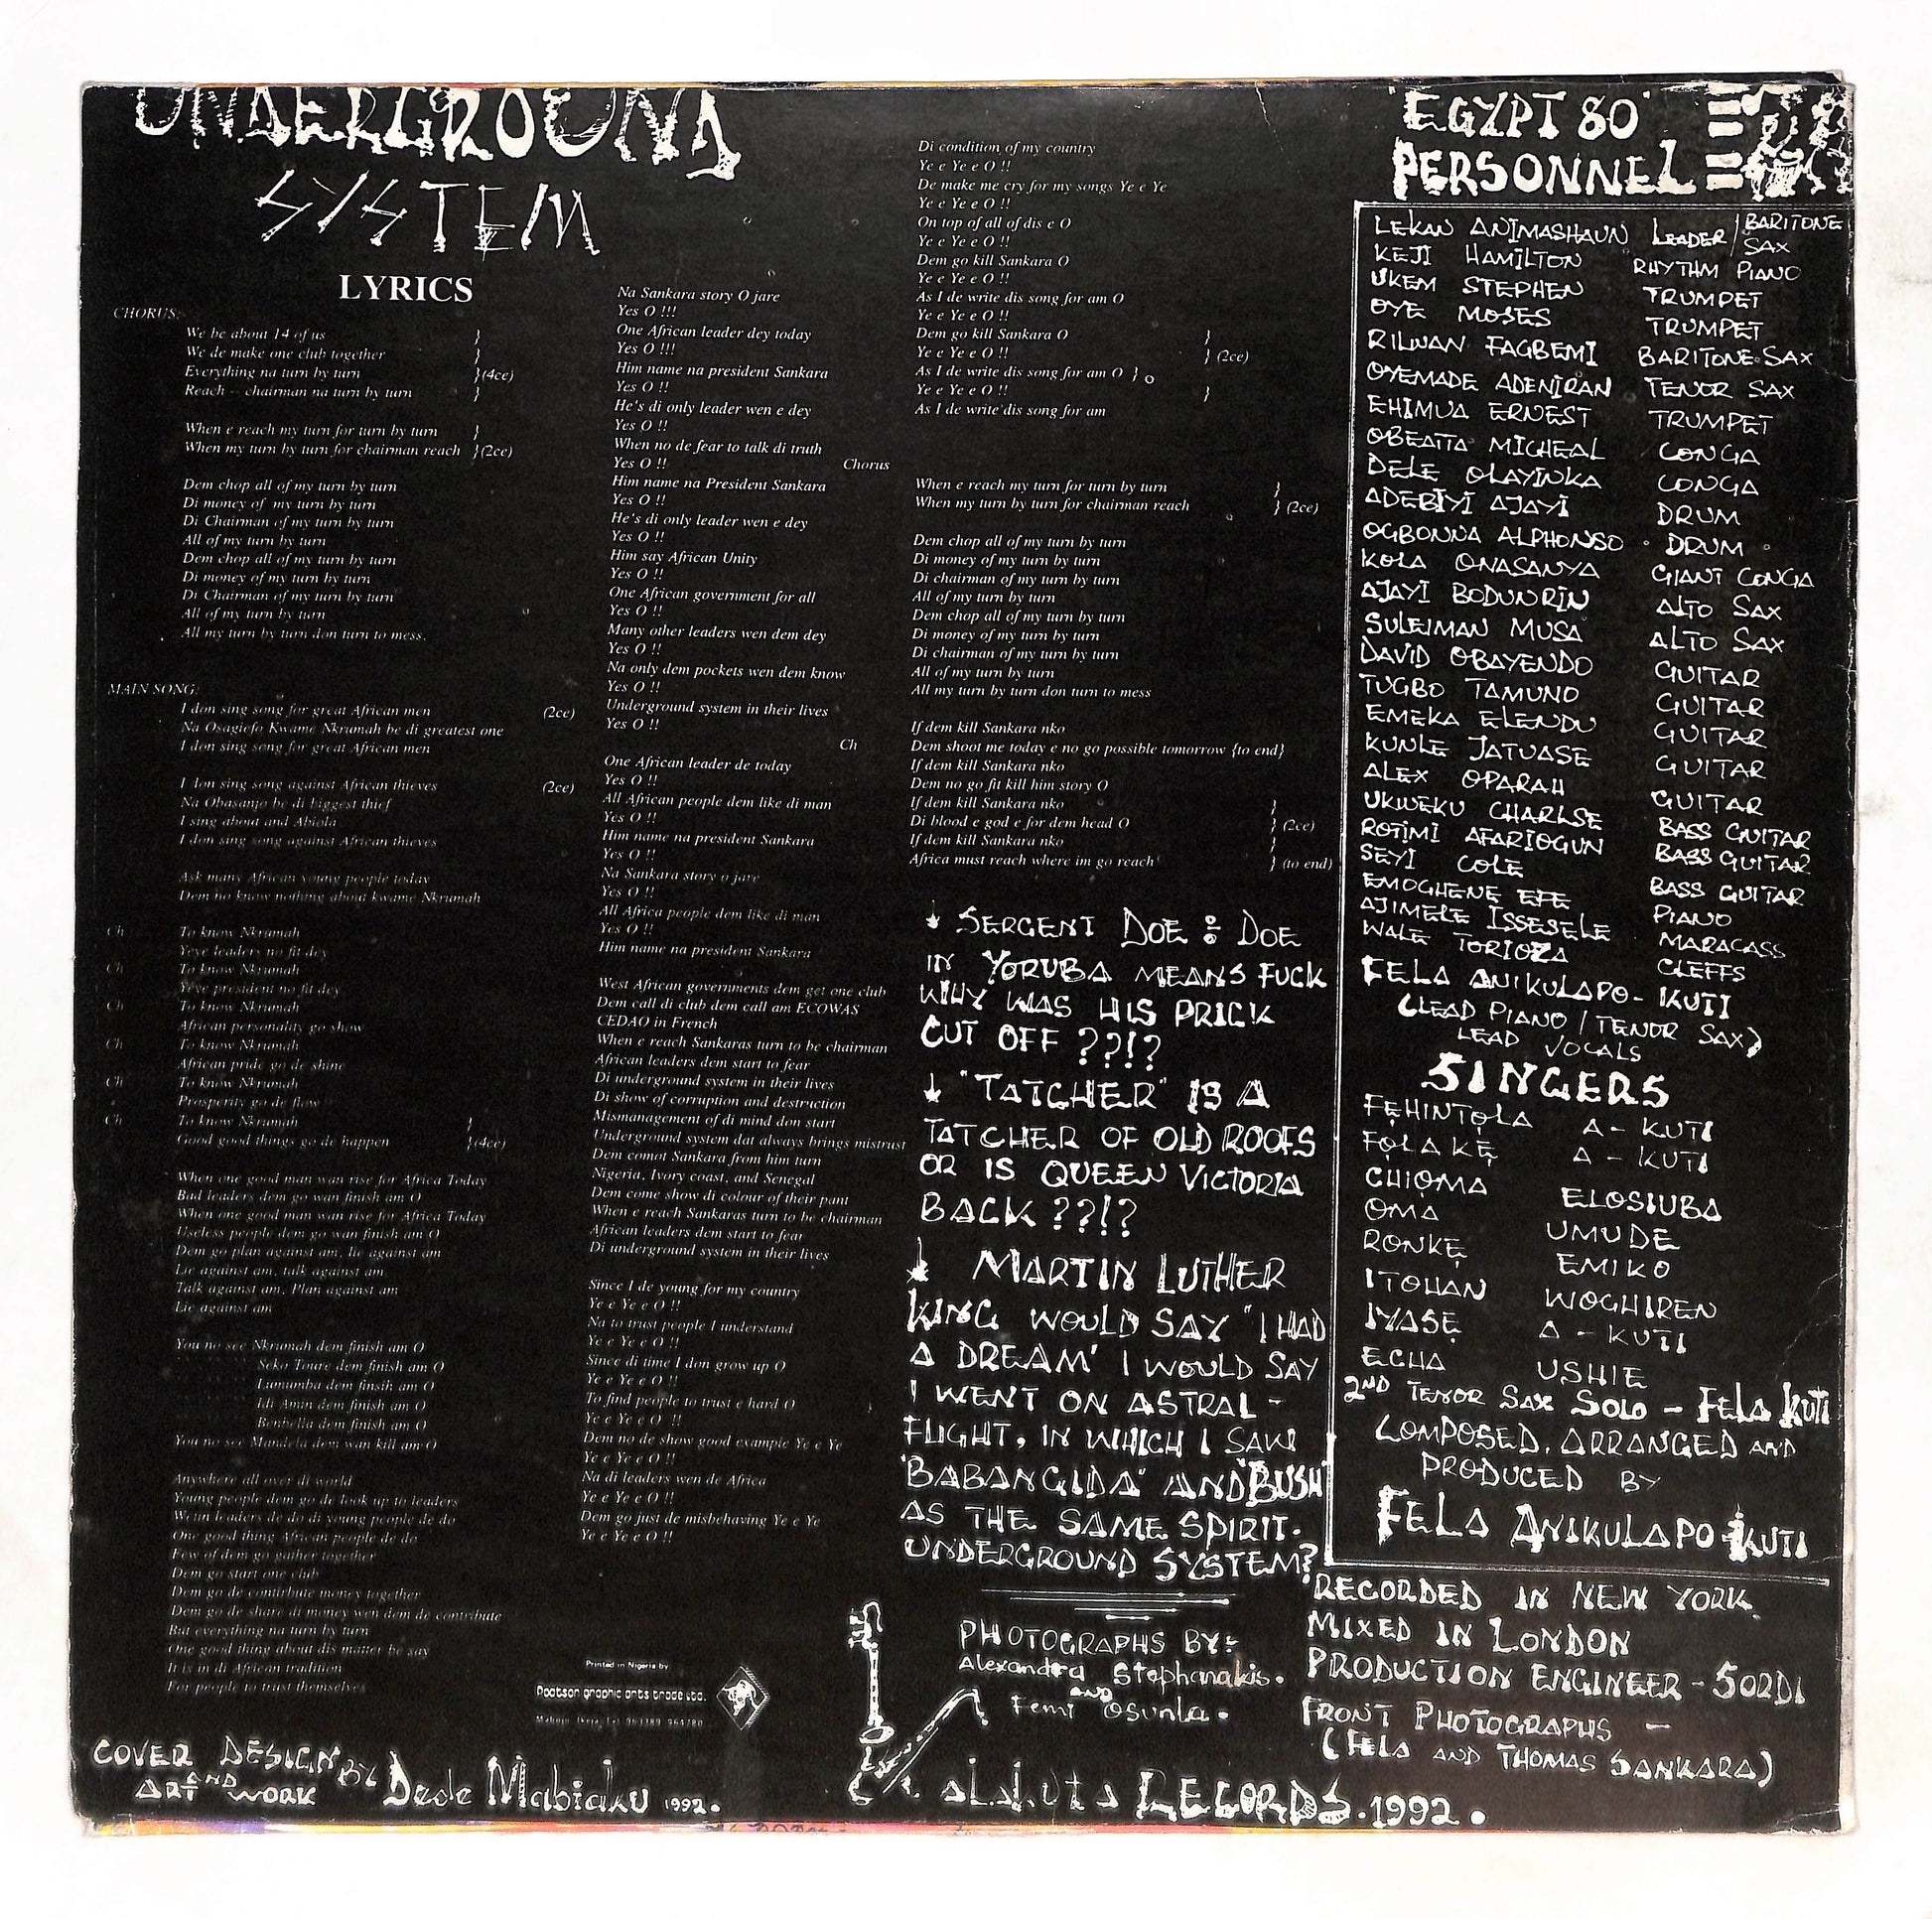 UNDERGROUND
SYSTEM
LYRICS
CHORUS:-
We be about 14 of us }
We de make one club together }
Everything na turn by turn }(4ce)
Reach - chairman na turn by turn }
When e reach my turn for turn by turn }
When my turn by turn for chairman reach }(2ce)
Dem chop all of my turn by turn
Di money of my turn by turn
Di Chairman of my turn by turn
All of my turn by turn
Dem chop all of my turn by turn
Di money of my turn by turn
Di Chairman of my turn by turn
All of my turn by turn
All my turn by turn don turn to mess.
MAIN SONG:
I don sing song for great African men (2ce)
Na Osagiefo Kwame Nkrumah be di greatest one
I don sing song for great African men
I don sing song against African thieves (2ce)
Na Obasanjo be di biggest thief
I sing about and Abiola
I don sing song against African thieves
Ask many African young people today
Dem no know nothing about kwame Nkrumah
Ch To know Nkrumah
Yeye leaders no fit dey
Ch To know Nkrumah
Yeye president no fit dey
Ch To know Nkrumah
African personality go show
Ch To know Nkrumah
African pride go de shine
Ch To know Nkrumah
Prosperity go de flow
Ch To know Nkrumah }
Good good things go de happen }(4ce)
When one good man wan rise for Africa Today
Bad leaders dem go wan finish am O
When one good man wan rise for Africa Today
Useless people dem go wan finish am O
Dem go plan against am, lie against am
Lie against am, talk against am
Talk against am, Plan against am
Lie against am
You no see Nkrumah dem finish am O
Seko Toure dem finish am O
Lumumba dem finsih am O
Idi Amin dem finish am O
Benbella dem finish am O
You no see Mandela dem wan kill am O
Anywhere all over di world
Young people dem go de look up to leaders
Wetin leaders de do di young people de do
One good thing African people de do
Few of dem go gather together
Dem go start one club
Dem go de contribute money together
Dem go de share di money wen dem de contribute
But everything na turn by turn
One good thing about dis matter be say
It is in di African tradition
For people to trust themselves
Na Sankara story O jare
Yes O !!!
One African leader dey today
Yes O !!!
Him name na president Sankara
Yes O !!
He's di only leader wen e dey
Yes O !!
When no de fear to talk di truth
Yes O !! Chorus
Him name na President Sankara
Yes O !!
He's di only leader wen e dey
Yes O !!
Him say African Unity
Yes O !!
One African government for all
Yes O !!
Many other leaders wen dem dey
Yes O !!
Na only dem pockets wen dem know
Yes O !!
Underground system in their lives
Yes O !!
Ch
One African leader de today
Yes O !!
All African people dem like di man
Yes O !!
Him name na president Sankara
Yes O !!
Na Sankara story o jare
Yes O !!
All Africa people dem like di man
Yes O !!
Him name na president Sankara
West African governments dem get one club
Dem call di club dem call am ECOWAS
CEDAO in French
When e reach Sankaras turn to be chairman
African leaders dem start to fear
Di underground system in their lives
Di show of corruption and destruction
Mismanagement of di mind don start
Underground system dat always brings mistrust
Dem comot Sankara from him turn
Nigeria, Ivory coast, and Senegal
Dem come show di colour of their pant
When e reach Sankaras turn to be chairman
African leaders dem start to fear
Di underground system in their lives
Since I de young for my country
Ye e Ye e O !!
Na to trust people I understand
Ye e Ye e O !!
Since di time I don grow up O
Ye e Ye e O !!
To find people to trust e hard O
Ye e Ye e O !!
Dem no de show good example Ye e Ye
Ye e Ye e O !!
Na di leaders wen de Africa
Ye e Ye e O !!
Dem go just de misbehaving Ye e Ye
Ye e Ye e O !!
Printed in Nigeria by
Dootson graphic arts trade ltd.
Di condition of my country
Ye e Ye e O !!
De make me cry for my songs Ye e Ye
Ye e Ye e O !!
On top of all of dis e O
Ye e Ye e O !!
Dem go kill Sankara O
Ye e Ye e O !!
As I de write dis song for am O
Ye e Ye e O !!
Dem go kill Sankara O }
Ye e Ye e O !! } (2ce)
As I de write dis song for am O }
Ye e Ye e O !! }
As I de write dis song for am
When e reach my turn for turn by turn }
When my turn by turn for chairman reach } (2ce)
Dem chop all of my turn by turn
Di money of my turn by turn
Di chairman of my turn by turn
All of my turn by turn
Dem chop all of my turn by turn
Di money of my turn by turn
Di chairman of my turn by turn
All of my turn by turn
All my turn by turn don turn to mess
If dem kill Sankara nko
Dem shoot me today e no go possible tomorrow {to end}
If dem kill Sankara nko
Dem no go fit kill him story O
If dem kill Sankara nko }
Di blood e god e for dem head O } (2ce)
If dem kill Sankara nko }
Africa must reach where im go reach } (to end)
SERGENT DOE : DOE
IN YORUBA MEANS FUCK
WHY WAS HIS PRICK
CUT OFF ??!?
"TATCHER" IS A
TATCHER OF OLD ROOFS
OR IS QUEEN VICTORIA
BACK ??!?
MARTIN LUTHER
KING WOULD SAY "I HAD
A DREAM' I WOULD SAY
I WENT ON ASTRAL -
FLIGHT, IN WHICH I SAW
"BABANGIDA" AND "BUSH"
AS THE SAME SPIRIT.
UNDERGROUND SYSTEM?
PHOTOGRAPHS BY:-
Alexandra Stephanakis.
AND
Femi Osunla.
'EGYPT 80'
PERSONNEL
LEKAN ANIMASHAUN LEADER / BARITONE SAX
KEJI HAMILTON RHYTHM PIANO
UKEM STEPHEN TRUMPET
OYE MOSES TRUMPET
RILWAN FAGBEMI BARITONE SAX
OYEMADE ADENIRAN TENOR SAX
EHIMUA ERNEST TRUMPET
OBEATTA MICHEAL CONGA
DELE OLAYINKA CONGA
ADEBIYI AJAYI DRUM
OGBONNA ALPHONSO DRUM
KOLA ONASANYA GIANT CONGA
AJAYI BODUNRIN ALTO SAX
SULEIMAN MUSA ALTO SAX
DAVID OBAYENDO GUITAR
TUGBO TAMUNO GUITAR
EMEKA ELENDU GUITAR
KUNLE JATUASE GUITAR
ALEX OPARAH GUITAR
UKWEKU CHARLSE BASS GUITAR
ROTIMI AFARIOGUN BASS GUITAR
SEYI COLE BASS GUITAR
EMOGHENE EFE PIANO
AJIMELE ISSESELE MARACASS
WALE TORIOZA CLEFFS
FELA ANIKULAPO-KUTI
(LEAD PIANO / TENOR SAX)
LEAD VOCALS
SINGERS
FẸHINTỌLA A - KUTI
FỌLAKẸ A - KUTI
CHIỌMA ELOSIUBA
OMA UMUDE
RONKẸ EMIKO
ITOHAN WOGHIREN
IYASẸ A - KUTI
ECHA USHIE
2ND TENOR SAX SOLO - FELA KUTI
COMPOSED, ARRANGED AND
PRODUCED BY
FELA ANIKULAPO KUTI
RECORDED IN NEW YORK.
MIXED IN LONDON
PRODUCTION ENGINEER - SORDI
FRONT PHOTOGRAPHS -
(FELA AND THOMAS SANKARA)
COVER DESIGN BY
AND
ART WORK
Dede Mabiaku 1992.
Kalakuta RECORDS. 1992.